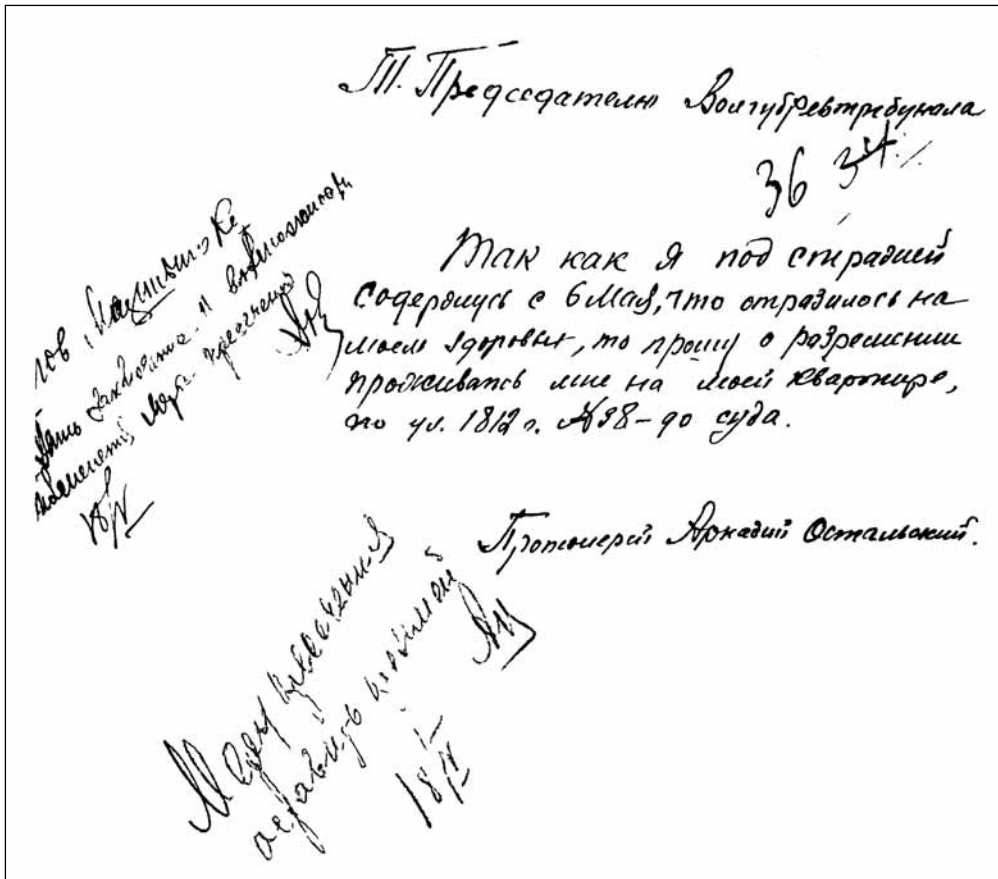 Т. Председателю Волгубревтрибунала
36
Так как я под стражей
содержусь с 6 Мая, что отразилось на
моем здоровьи, то прошу о разрешении
проживать мне на моей квартире,
по ул. 1812 г. №98 - до суда.
Протоиерей Аркадий Остальский.
тов.
Дать заключение о возможности
изменения меры пресечения
Меру пресечения
оставить прежней
18/V